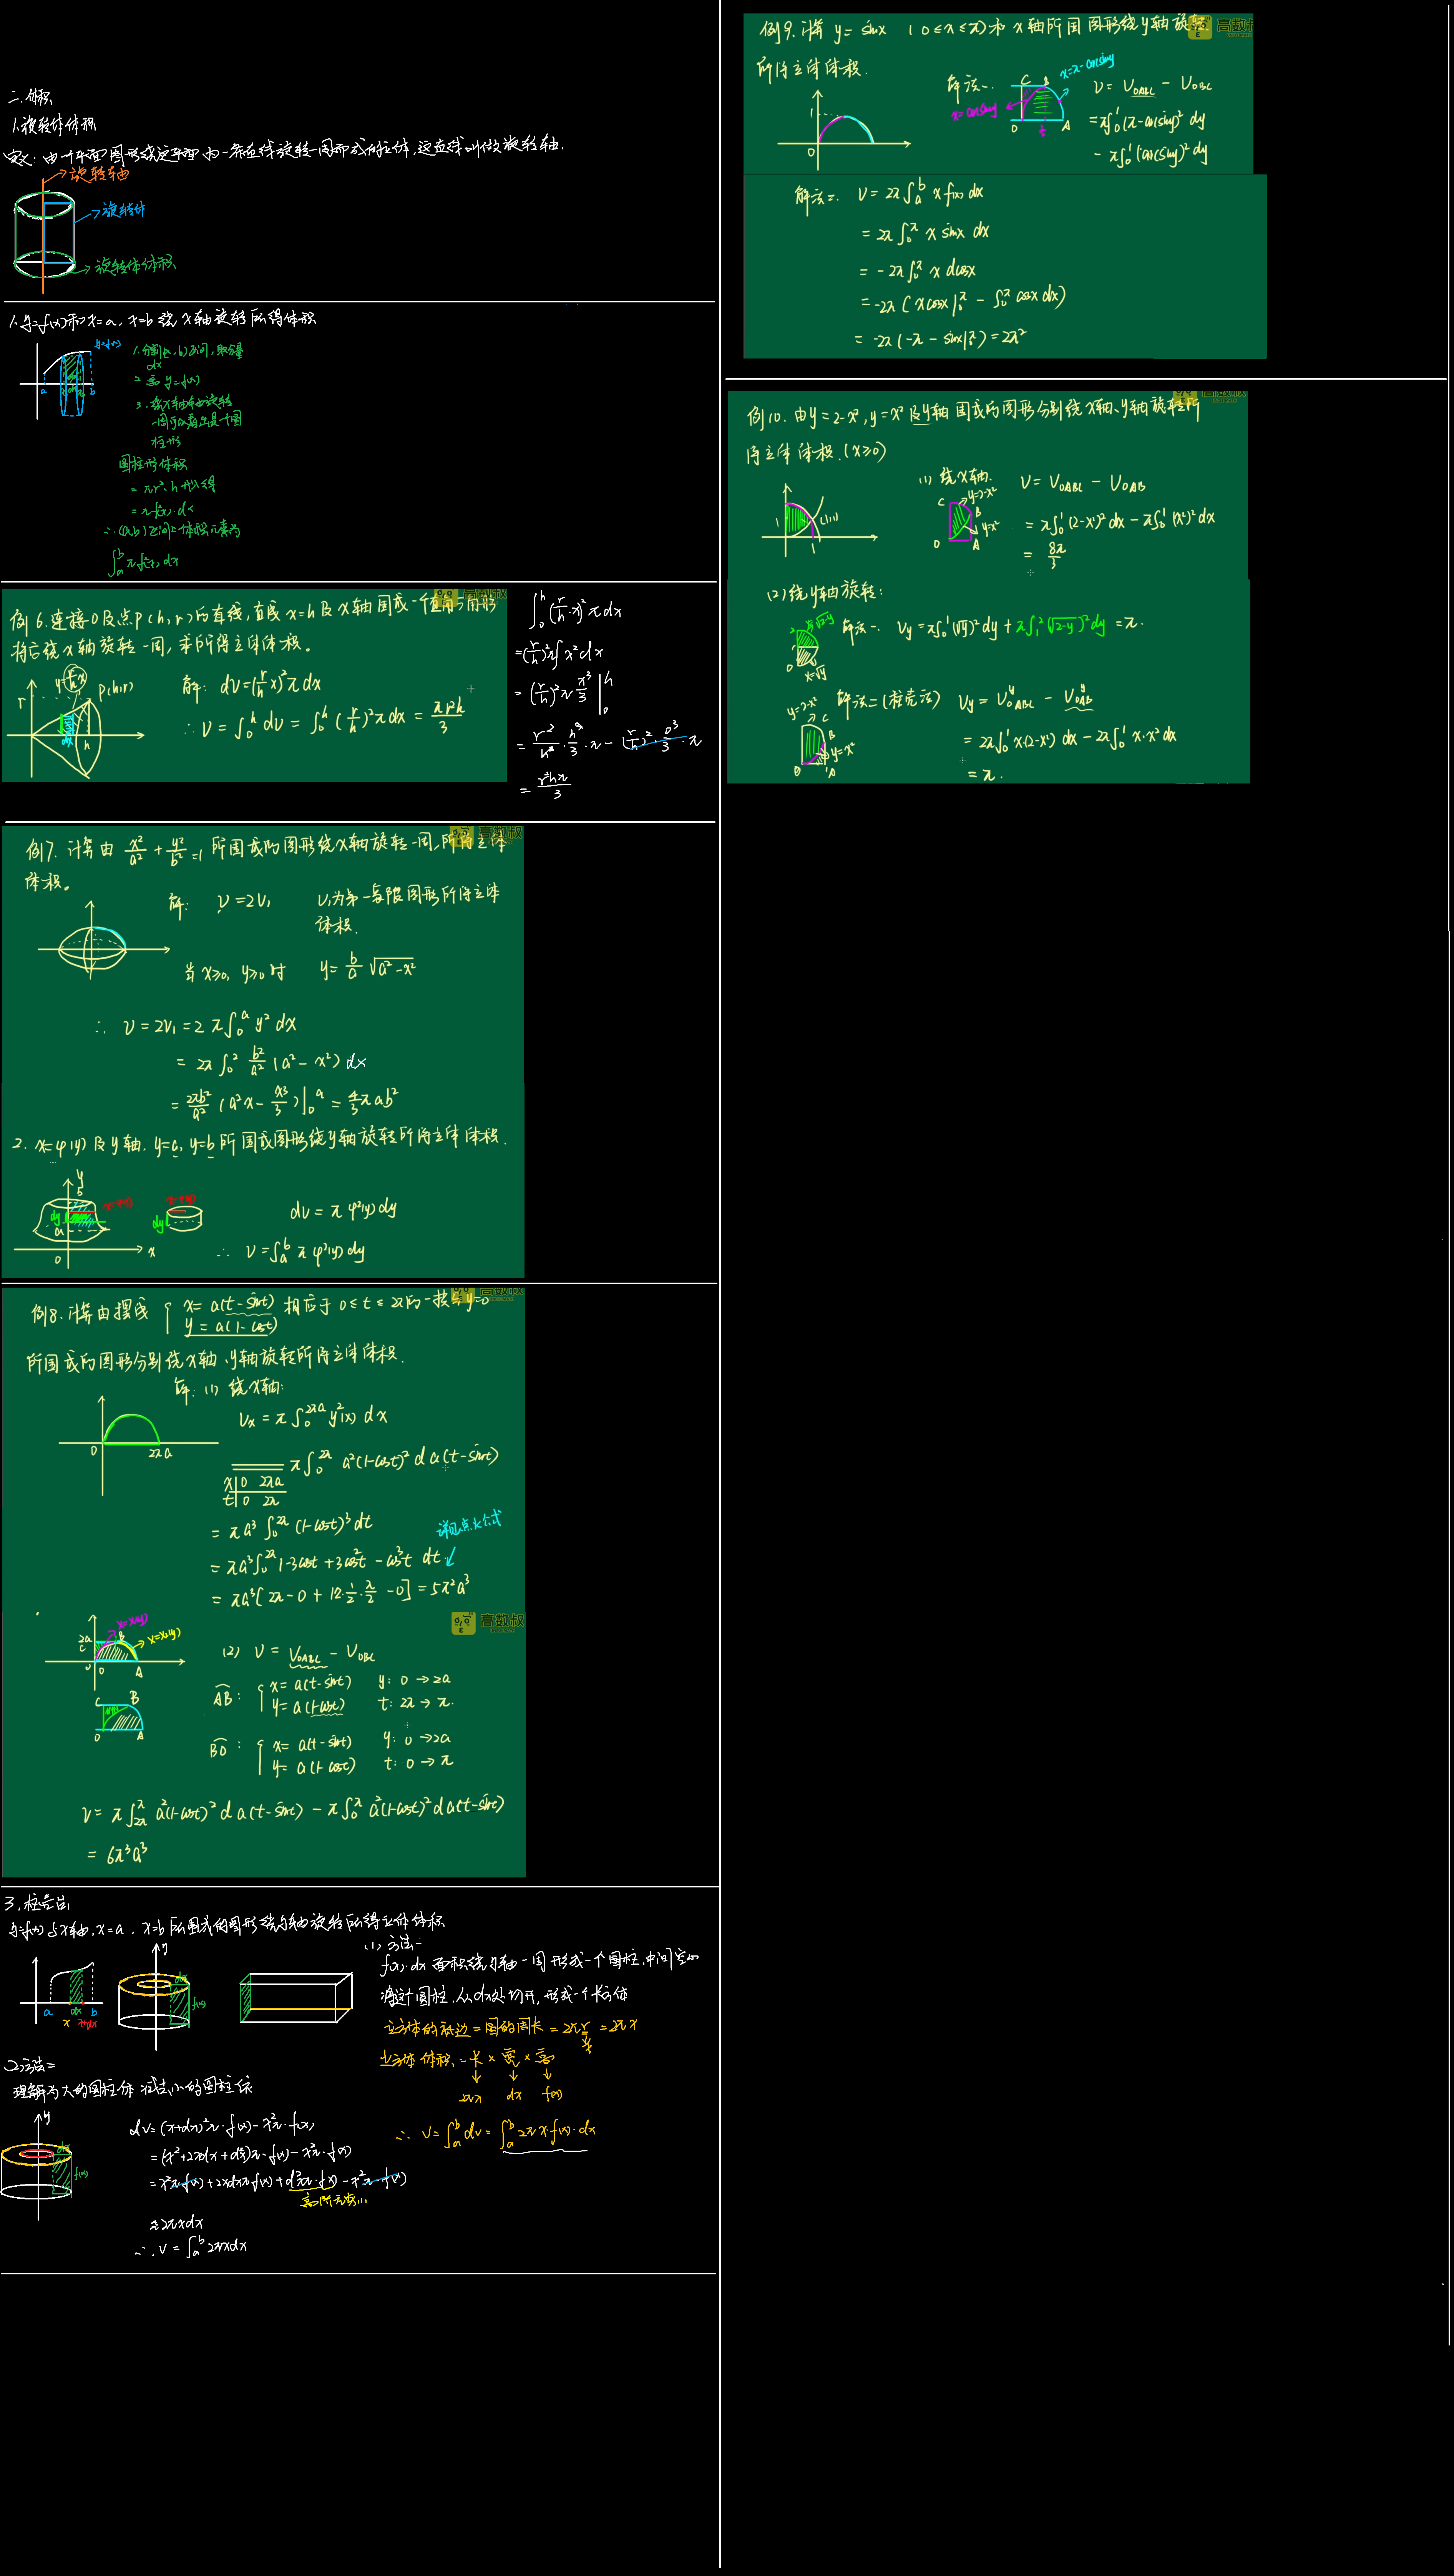 二.体积
1.旋转体体积
定义:由一个平面图形绕这平面内一条直线旋转一周而成的立体,这直线叫做旋转轴.
旋转轴
旋转体
旋转体体积
1.y=f(x)和x=a,x=b绕x轴旋转所得体积
y=f(x)
a
b
1.分割(a,b)区间,取分量
dx
2 高 y=f(x)
3.绕x轴旋转
一周可以看出是一个圆
柱形
圆柱形体积
=πr²·h
∴(a,b)区间上体积元素为
∫ₐᵇ πf²(x) dx
例6.连接O及点P(h,r)的直线,直线x=h及x轴围成一个直角三角形
将它绕x轴旋转一周,求所得立体体积。
P(h,r)
r
h
解: dV=(r/h x)²π dx
∴ V=∫₀ʰ dV=∫₀ʰ (r/h x)²π dx = πr²h/3
∫₀ʰ (r/h·x)²π dx
=(r/h)²π∫x²dx
=(r/h)²π x³/3 |₀ʰ
= r²/h²·h³/3·π - (r/h)²·0³/3·π
= r²hπ/3
高数叔
例7.计算由 x²/a² + y²/b² =1 所围成的图形绕x轴旋转一周,所得立体
体积。
解: V=2V₁ V₁为第一象限图形所得立体
体积.
当x≥0, y≥0时 y= b/a √(a²-x²)
∴ V=2V₁=2π∫₀ᵃ y² dx
= 2π∫₀² b²/a² (a²-x²) dx
= 2πb²/a² (a²x - x³/3)|₀ᵃ = 4/3 πab²
2. x=φ(y) 及y轴. y=a, y=b所围成图形绕y轴旋转所得立体体积.
y
b
dy
a
0
x
dy
dV = π φ²(y) dy
∴ V=∫ₐᵇ π φ²(y) dy
例8.计算由摆线 { x= a(t-sint) 相应于 0≤t≤2π的一拱与y=0
y= a(1-cost)
所围成的图形分别绕x轴、y轴旋转所得立体体积.
解: (1) 绕x轴:
0
2πa
Vx = π∫₀^2πa y²(x) dx
π∫₀^2π a²(1-cost)² d a(t-sint)
x|0 2πa
t|0 2π
= πa³ ∫₀^2π (1-cost)³ dt
= πa³∫₀^2π 1-3cost+3cos²t - cos³t dt
= πa³[2π-0+12·1/2·π/2 -0] = 5π²a³
高数叔
2a
C
B
0
A
C
B
0
A
(2) V = V_OABC - V_OBC
AB: { x= a(t-sint) y: 0→2a
y= a(1-cost) t: 2π→π.
BO: { x= a(t-sint) y: 0→2a
y= a(1-cost) t: 0→π
V= π∫_2π^π a²(1-cost)² d a(t-sint) - π∫₀^π a²(1-cost)² d a(t-sint)
= 6π³a³
3.柱壳法
y=f(x)与x轴.x=a.x=b所围成的图形绕y轴旋转所得立体体积
a
dx
b
x
x+dx
y
dx
f(x)
(1)方法一
f(x)·dx 面积绕y轴一周形成一个圆柱.中间空的
将这个圆柱.从dx处切开,形成一个长方体
立方体的底边=圆的周长=2πr=2πx
立方体体积=长×宽×高
2πx dx f(x)
∴ V=∫ₐᵇ dV=∫ₐᵇ 2πx·f(x)·dx
(2)方法二
理解为大的圆柱体 减去小的圆柱体
y
dx
f(x)
dV=(x+dx)²π·f(x)-x²π·f(x)
=(x²+2xdx+d²x)π·f(x)-x²π·f(x)
=x²π·f(x)+2xdxπf(x)+d²xπ·f(x)-x²π·f(x)
高阶无穷小
≈2πxdx
∴ V=∫ₐᵇ 2πxdx
例9.计算 y= sinx (0≤x≤π)和x轴所围图形绕y轴旋转
所得立体体积.
1
0
解法一.
x=π-arcsiny
x=arcsiny
C
B
0
A
V= V_OABC - V_OBC
=π∫₀¹(π-arcsiny)² dy
- π∫₀¹(arcsiny)² dy
解法二. V= 2π∫ₐᵇ x f(x) dx
= 2π∫₀^π x sinx dx
= -2π∫₀^π x dcosx
= -2π (xcosx|₀^π - ∫₀^π cosx dx)
= -2π(-π - sinx|₀^π) = 2π²
例10.由y=2-x²,y=x²及y轴围成的图形分别绕x轴、y轴旋转所
得立体体积.(x≥0)
1
(1,1)
1
(1) 绕x轴.
C
y=2-x²
B
y=x²
0
A
V= V_OABC - V_OAB
= π∫₀¹(2-x²)² dx - π∫₀¹(x²)² dx
= 8π/3
(2)绕y轴旋转:
2
x=√(2-y)
0
x=√y
解法一. Vy=π∫₀¹(√y)² dy + π∫₁²(√(2-y))² dy =π.
y=2-x²
C
B
y=x²
0
A
解法二(柱壳法) Vy = V_OABC^y - V_OAB^y
= 2π∫₀¹ x(2-x²) dx - 2π∫₀¹ x·x² dx
= π.